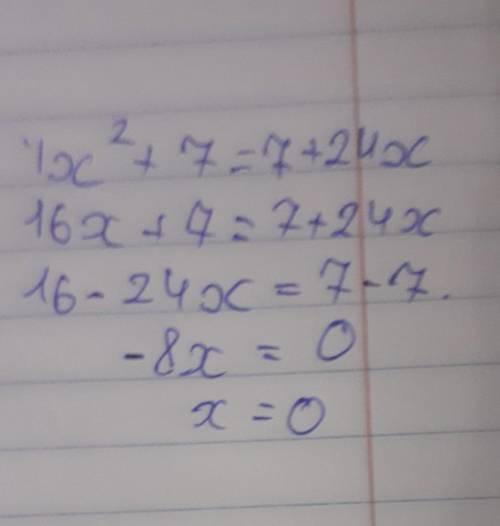 4x² + 7 = 7 + 24x
16x + 7 = 7 + 24x
16 - 24x = 7 - 7.
-8x = 0
x = 0